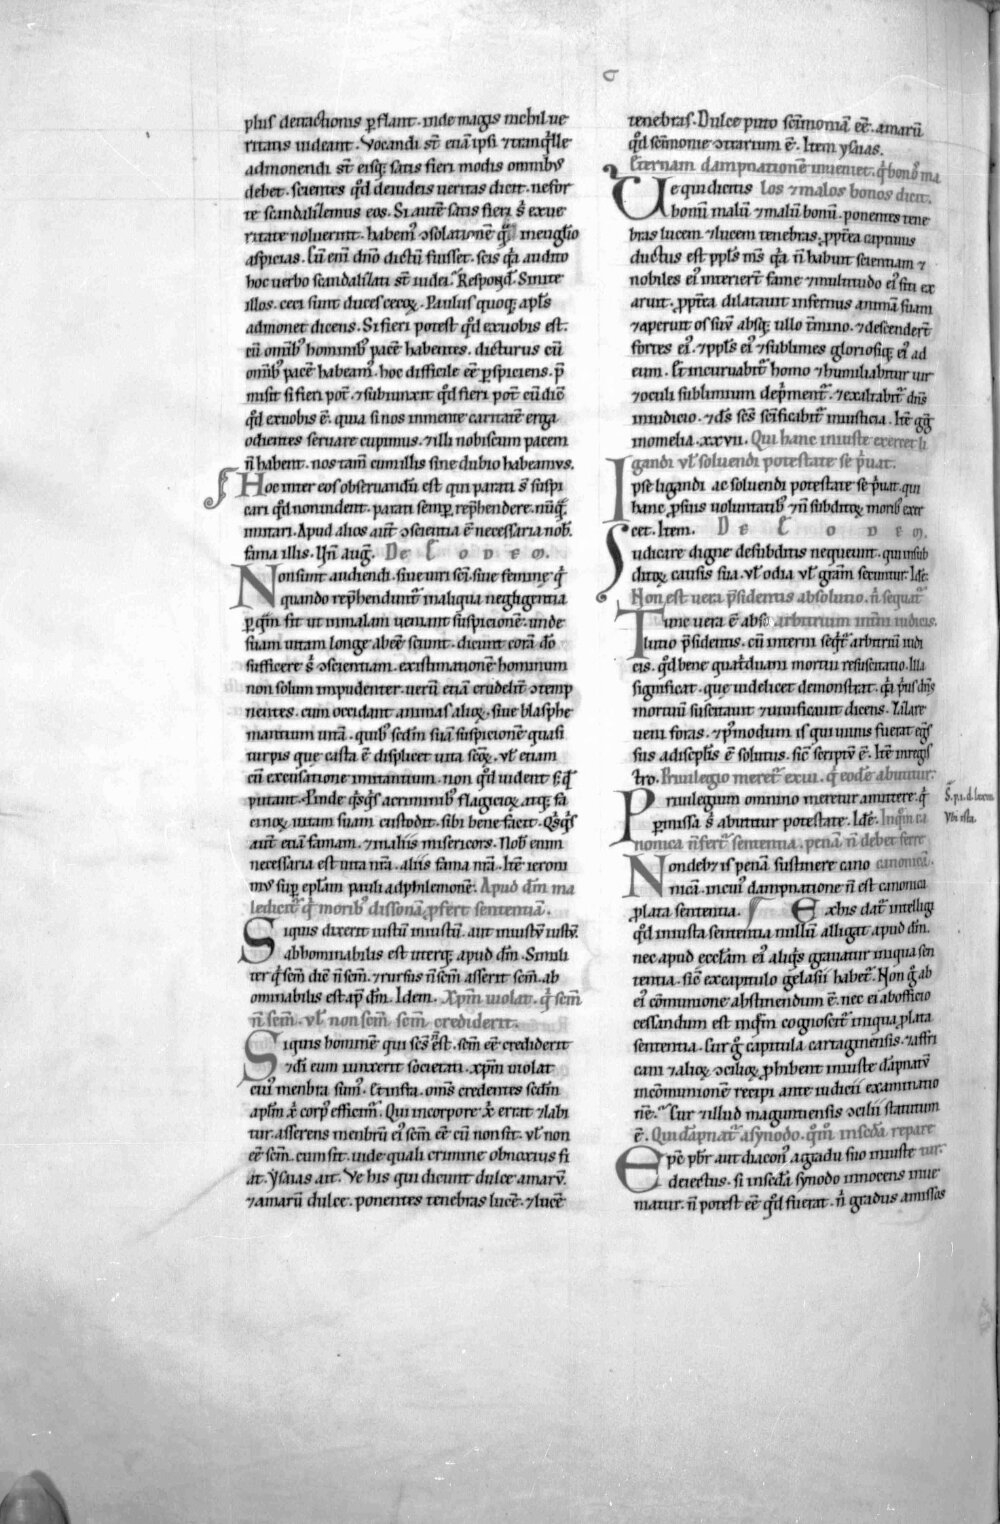 plus detractionis perflant. inde magis nichil ue
ritatis uideant. Vocandi st̄ etiā ipsi ⁊ tranq̇lle
admonendi st̄ eisq; satis fieri modis omnibꝰ
debet. scientes qd̄ de iudeis ueritas dicit. ne for
te scandalizemus eos. Si autē satis fieri s; ex ue
ritate noluerint. habemꝰ ↄsolationē in euglio
aspicias. Cū em̄ dn̄o dictū fuisset. scis q̇a audito
hoc uerbo scandalizati st̄ iudei. Respond̄. Sinite
illos. ceci sunt duces cecoꝝ. Paulus quoq; apl̄s
admonet dicens. Si fieri potest qd̄ ex uobis est.
cū omībꝰ hominibꝰ pacē habentes. dicturus cū
omībꝰ pacē habeamꝰ. hoc difficile eē ꝑspiciens. p̄
misit si fieri pot̄. ⁊ subiunxit qd̄ fieri pot̄ cū dic̄
qd̄ ex uobis ē. quia si nos in mente caritatē erga
odientes seruare cupimus. ⁊ illi nobiscum pacem
n̄ habent. nos tam̄ cum illis sine dubio habeamus.
Hoc inter eos obseruandū est qui parati s̄ suspi
cari qd̄ non uident. parati semꝑ rep̄hendere. nūq̄
imitari. Apud alios aut̄ ↄscientia ē necessaria nob̄.
fama illis. Un̄ auḡ. De Eodem.
Non sunt audiendi. siue uiri sc̄i. siue femine q̇
quando rep̄henduntᷣ in aliqua negligentia
ꝑ q̄m fit ut in malam ueniant suspicionē. unde
suam uitam longe abeē sciunt. dicunt corā dō
sufficere s; ↄscientiam. existimationē hominum
non solum impudenter. uerū etiā crudelit̄ ↄtemp
nentes. cum occidant animas alioꝝ. siue blasphe
mantium uitā. quibꝰ scdm̄ suā suspicionē quasi
turpis que casta ē displicet uita sc̄oꝝ. ul̄ etiam
cū excusatione imitantium. non qd̄ uident s; qd̄
putant. Proinde q̇sq̇s a criminibꝰ flagicioꝝ atq; fa
cinoꝝ uitam suam custodit. sibi bene facit. Q̇sq̇s
aut̄ etiā famam. ⁊ in aliis misericors. Nob̄ enim
necessaria est uita nr̄a. aliis fama nr̄a. Itē iero­ni
mꝰ suꝑ epl̄am pauli ad philemonē. Apud dm̄ ma
ledicitᷣ q̇ moribꝰ dissonā ꝓfert sententiā.
Si quis dixerit iustū iniustū. aut iniustū iustū.
abhominabilis est uterq; apud dm̄. Simili
ter q̇ sc̄m dic̄ n̄ sc̄m. ⁊ rursus n̄ sc̄m asserit sc̄m. ab
ominabilis est ap̄ dm̄. Idem. Xpm̄ uiolat. q̇ sc̄m
n̄ sc̄m. ul̄ non sc̄m sc̄m crediderit.
Si quis hominē qui sc̄s n̄ est. sc̄m eē crediderit
⁊ dī eum iunxerit societati. xpm̄ uiolat
cuiꝰ menbra sumꝰ. Et infra. Om̄s credentes scdm̄
aplm̄ xp̄i corpꝰ efficimᷣ. Qui in corpore xp̄i errat ⁊ labi
tur. asserens menbrū eiꝰ sc̄m eē cū non sit. ul̄ non
eē sc̄m. cum sit. uide quali crimine obnoxius fi
at. Ysaias ait. Ve his qui dicunt dulce amarū.
⁊ amarū dulce. ponentes tenebras lucē. ⁊ lucē
tenebras. Dulce puto sc̄imoniā eē. amarū
qd̄ sc̄imonie ↄtrarium ē. Item ysaias.
Eternam dampnationē inueniet. q̇ bonoꝰ ma
los ⁊ malos bonos dicit.
Ue qui dicitis
bonū malū ⁊ malū bonū. ponentes tene
bras lucem ⁊ lucem tenebras. ꝓpt̄ea captiuus
ductus est ppl̄s mīs q̇a n̄ habuit scientiam ⁊
nobiles eiꝰ interier̄t fame ⁊ multitudo eiꝰ siti ex
aruit. ꝓpt̄ea dilatauit infernus animā suam
⁊ aperuit os suū absq; ullo t̄mino. ⁊ descender̄t
fortes eiꝰ. ⁊ ppl̄s eiꝰ ⁊ sublimes gloriosiq; eiꝰ ad
eum. Et incuruabitᷣ homo ⁊ humiliabitur uir
⁊ oculi sublimium dep̄mentᷣ. ⁊ exaltabitᷣ dn̄s
in iudicio. ⁊ ds̄ sc̄s sc̄ificabitᷣ in iusticia. Itē gg̃
in omelia. xxvii. Qui hanc iniuste exercet li
gandi ul̄ soluendi potestate se ṗuat.
Ipse ligandi ac soluendi potestate se ṗuat. qui
hanc ꝓ suis uoluntatibꝰ ⁊ n̄ subditoꝝ moribꝰ exer
cet. Item. De Eodem.
Iudicare digne de subditis nequeunt. qui in sub
ditoꝝ causis sua ul̄ odia ul̄ gr̄am secuntur. Idē.
Non est uera p̄sidentis absolutio. n̄ sequatᷣ
arbitrium int̄ni iudicis.
Tunc uera ē abso
lutio p̄sidentis. cū interni seq̇tᷣ arbitriū iudi
cis. qd̄ bene quatriduani mortui resuscitatio. illa
significat. que uidelicet demonstrat. q̇a ṗus dn̄s
mortuū suscitauit ⁊ uiuificauit dicens. Lazare
ueni foras. ⁊ p̄ modum is qui uiuus fuerat egs̄
sus a discipl̄is ē solutus. sic̄ scriptū ē. Itē in regis
tro. Priuilegio meretᷣ exui. q̇ eodē abutitur.
Priuilegium omnino meretur amittere. q̇
ꝑmissa s; abutitur potestate. Idē. In quē ca
nonica n̄ fertᷣ sententia. penā n̄ debet ferre
canonicā.
Non debꝫ is penā sustinere cano
nicā. in cuiꝰ dampnatione n̄ est canonica
ꝓlata sententia. Ex his datᷣ intelligi
qd̄ iniusta sententia nullū alligat apud dm̄.
nec apud eccl̄am eiꝰ aliq̇s grauatur iniqua sen
tentia. sic̄ ex capitulo gelasii habetᷣ. Non g̊ ab
eiꝰ cōmunione abstinendum ē. nec ei ab officio
cessandum est in quē cognoscitᷣ iniqua ꝓlata
sententia. Cur g̊ capitula cartaginensis. ⁊ affri
cani ⁊ alioꝝ ↄcilioꝝ ꝓhibent iniuste dāpnatū
in cōmunionē recipi ante iudicii examinatio
nē. Cur ⁊ illud maguntiensis ↄcilii statutum
ē. Qui dāpnatᷣ a synodo. qm̄ in sc̄da repare
tur.
Epc̄ pbr̄ aut diaconꝰ a gradu suo iniuste
deiectus. si in sc̄da synodo innocens inue
niatur. n̄ potest eē qd̄ fuerat. n̄ gradus amissos